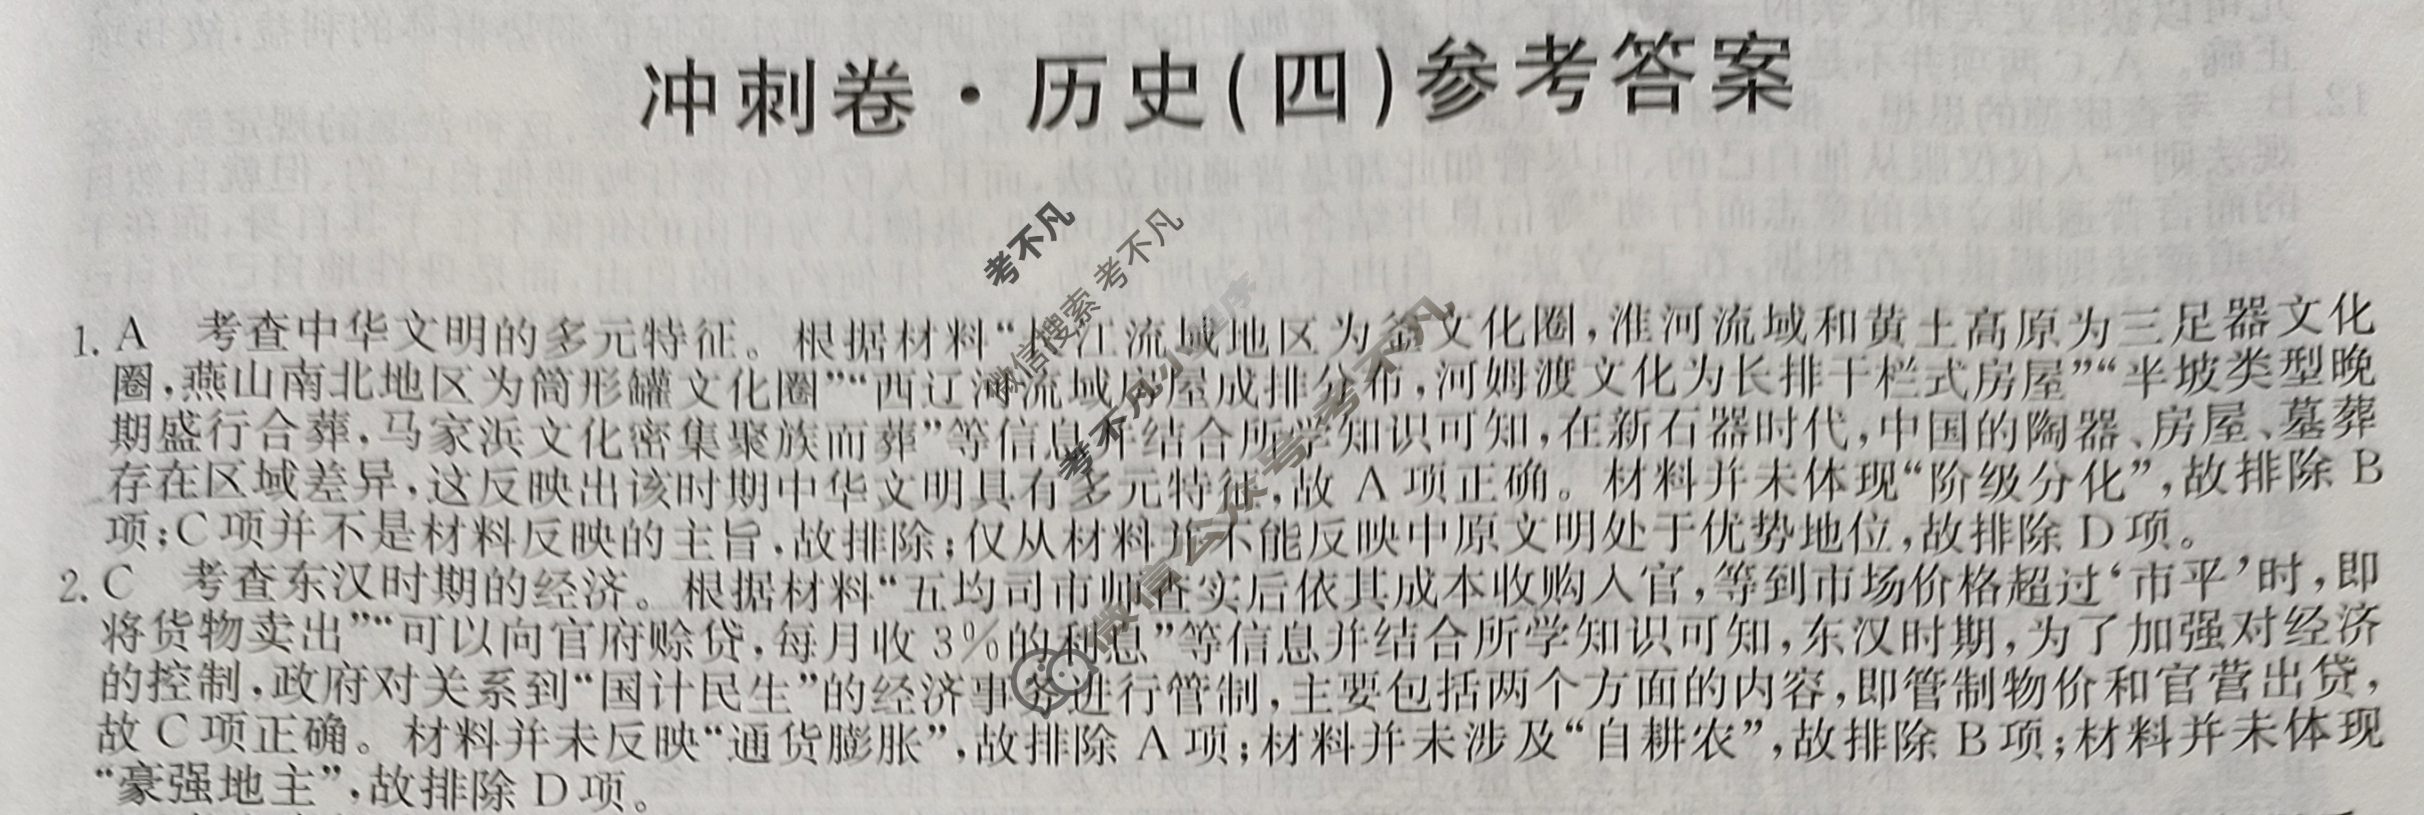 冲刺卷·历史(四)参考答案
1. A 考查中华文明的多元特征。根据材料“长江流域地区为釜文化圈,淮河流域和黄土高原为三足器文化
圈,燕山南北地区为筒形罐文化圈”“西辽河流域房屋成排分布,河姆渡文化为长排干栏式房屋”“半坡类型晚
期盛行合葬,马家浜文化密集聚族而葬”等信息并结合所学知识可知,在新石器时代,中国的陶器、房屋、墓葬
存在区域差异,这反映出该时期中华文明具有多元特征,故 A 项正确。材料并未体现“阶级分化”,故排除 B
项;C 项并不是材料反映的主旨,故排除;仅从材料并不能反映中原文明处于优势地位,故排除 D 项。
2. C 考查东汉时期的经济。根据材料“五均司市师查实后依其成本收购入官,等到市场价格超过‘市平’时,即
将货物卖出”“可以向官府赊贷,每月收 3%的利息”等信息并结合所学知识可知,东汉时期,为了加强对经济
的控制,政府对关系到“国计民生”的经济事务进行管制,主要包括两个方面的内容,即管制物价和官营出贷,
故 C 项正确。材料并未反映“通货膨胀”,故排除 A 项;材料并未涉及“自耕农”,故排除 B 项;材料并未体现
“豪强地主”,故排除 D 项。
考不凡
微信搜索 考不凡
考不凡小程序
微信公众号 考不凡